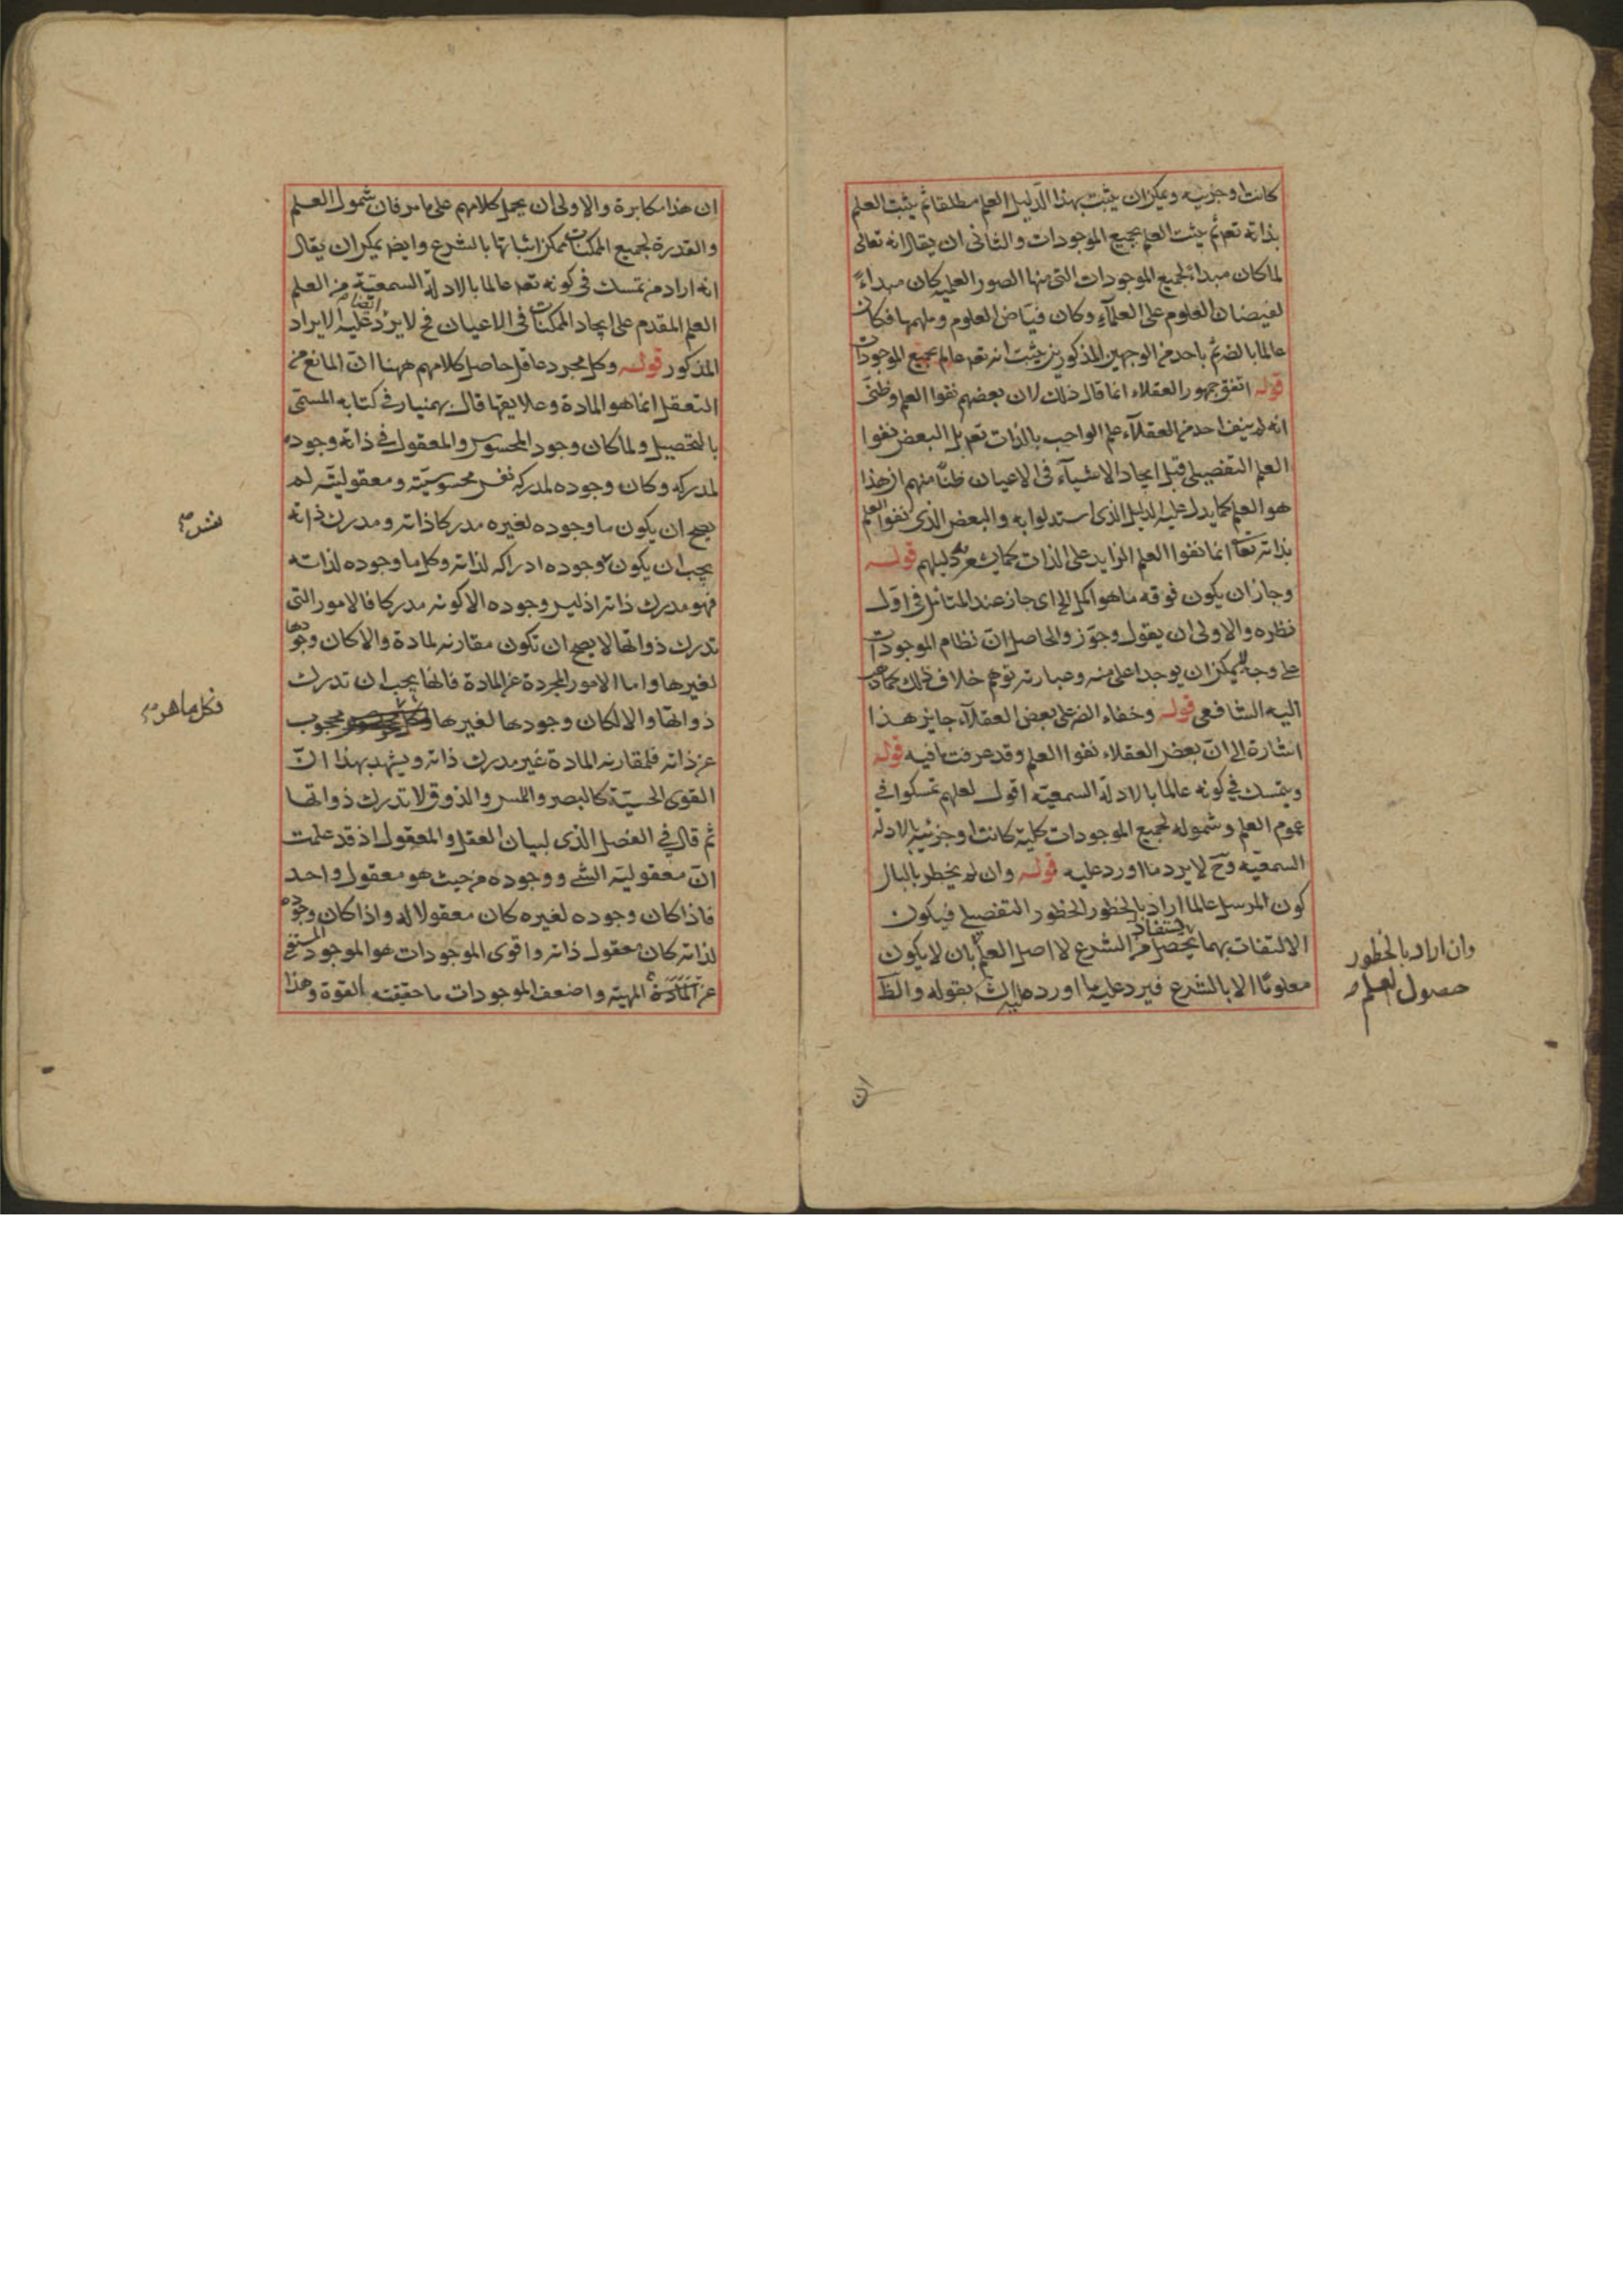 كانت او جزئيه ويمكن ان يثبت بهذا الدليل العلم مطلقا ثم يثبت العلم
بذاته تعـ ثم يثبت العلم بجميع الموجودات والثانى ان يقال انه تعالى
لما كان مبداء لجميع الموجودات التى منها الصور العلميه كان مبداءً
لفيضان العلوم على العلمآء وكان فياض العلوم وملهمها فكان
عالما بالضـ ثم باحد من الوجهين المذكورين يثبت انه تعـ عالم بجميع الموجودات
قوله اتفق جمهور العقلاء انما قال ذلك لان بعضهم نفوا العلم وظنى
انه لم ينف احد من العقلآء علم الواجب بالذات تعـ بل البعض نفوا
العلم التفصيلى قبل ايجاد الاشيآء فى الاعيان ظنًّا منهم ان هذا
هو العلم كما يدل عليه الدليل الذى استدلوا به والبعض الذى نفوا العلم
بذاته تعا انما نفوا العلم الزايد على الذات كما يشعر به دليلهم قولـه
وجاز ان يكون فوقه ما هو اكمل الخ اى جاز عند المتأمل فى اول
نظره والاولى ان يقول وجوّز والحاصل انّ نظام الموجودات
على وجه لا يمكن ان يوجد اعلى منه وعبارته توهم خلاف ذلك كما ذهب
اليه الشافعى قولـه وخفاء الضـ على بعض العقلآء جايز هذا
اشارة الى ان بعض العقلاء نفوا العلم وقد عرفت ما فيه قولـه
ويتمسك في كونه عالما بالادلة السمعيّه اقول لعلهم تمسكوا في
عموم العلم وشموله لجميع الموجودات كلية كانت او جزئية بالادلة
السمعيّه وحـ لا يرد ما اورد عليه قولـه وان لم يخطر بالبال
كون المرسل عالما اراد بالخطور الخطور التفصيلى فيكون
الالتفات بهما يحصل من الشرع لا اصل العلم بان لا يكون
يستفاد
معلومًا الا بالشرع فيرد عليه ما اورد بقوله والظـ
وان اراد بالخطور
حصول العلم
ان
ان هذا مكابرة والاولى ان يحمل كلامهم على ما مر فان شمول العلم
والقدرة لجميع الممكنات ممكن اثباتها بالشرع وايضـ يمكن ان يقال
انه اراد من تمسك فى كونه تعـ عالما بالادلة السمعيّة من العلم
العلم المقدم على ايجاد الممكنات فى الاعيان فح لا يرد عليه الايراد
ايضا
المذكور قولـه وكل مجرد عاقل حاصل كلامهم ههنا ان المانع من
التعقل انما هو المادة وعلايقها قال بهمنيار في كتابه المسمّى
بالتحصيل ولما كان وجود المحسوس والمعقول في ذاته وجوده
لمدركه وكان وجوده لمدركه نفس محسوسيّته ومعقوليّته لم
يصح ان يكون ما وجوده لغيره مدركا ذاته ومدرك ذاته
يجب ان يكون وجوده ادراكه لذاته وكل ما وجوده لذاته
فهو مدرك ذاته اذ ليس وجوده الا كونه مدركا فالامور التى
تدرك ذواتها لا يصح ان تكون مقارنه لمادة والا كان وجودها
لغيرها واما الامور المجردة عن المادة فانها يجب ان تدرك
ذواتها والا لكان وجودها لغيرها محجوب
عن ذاته فلمقارنه المادة غير مدرك ذاته ويشهد بهذا انّ
القوى الحسيّة كالبصر واللمس والذوق لا تدرك ذواتها
ثم قال في الفصل الذى لبيان العقل والمعقول اذ قد علمت
انّ معقوليّه الشئ ووجوده من حيث هو معقول واحد
فاذا كان وجوده لغيره كان معقولا له واذا كان وجوده
لذاته كان معقول ذاته واقوى الموجودات هو الموجود المستغنى
عن المادة المهيّه واضعف الموجودات ما حقيقته القوة وهذا
فكل ما هو